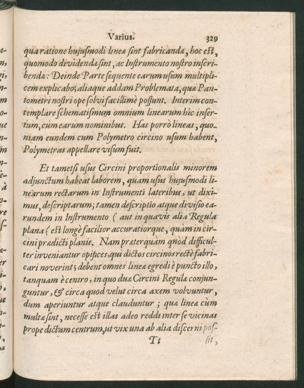 Varius. 329
qua ratione hujusmodi lineæ sint fabricandæ, hoc est,
quomodo dividendæ sint, ac Instrumento nostro inscri-
bendæ: Deinde Parte sequente earum usum multipli-
cem explicabo, aliaque addam Problemata, quæ Pan-
tometri nostri ope solvi facillimè possunt. Interim con-
templare schematismum omnium linearum hîc inser-
tum, cum earum nominibus. Has porrò lineas, quo-
niam eundem cum Polymetro circino usum habent,
Polymetras appellare visum fuit.
Et tametsi usus Circini proportionalis minorem
adjunctum habeat laborem, quàm usus hujusmodi li-
nearum rectarum in Instrumenti lateribus, ut dixi-
mus, descriptarum; tamen descriptio atque divisio ea-
rundem in Instrumento (aut in quavis alia Regula
plana) est longè facilior accuratiorque, quàm in cir-
cini prædicti planis. Nam præterquàm quòd difficul-
ter inveniantur opifices, qui dictos circinos rectè fabri-
cari noverint; debent omnes lineæ egredi è puncto illo,
tanquam è centro, in quo duæ Circini Regulæ conjun-
guntur, & circa quod velut circa axem volvuntur,
dum aperiuntur atque clauduntur; quæ lineæ cùm
multæ sint, necesse est illas adeo reddi inter se vicinas
prope dictum centrum, ut vix una ab alia discerni pos-
Tt sit,